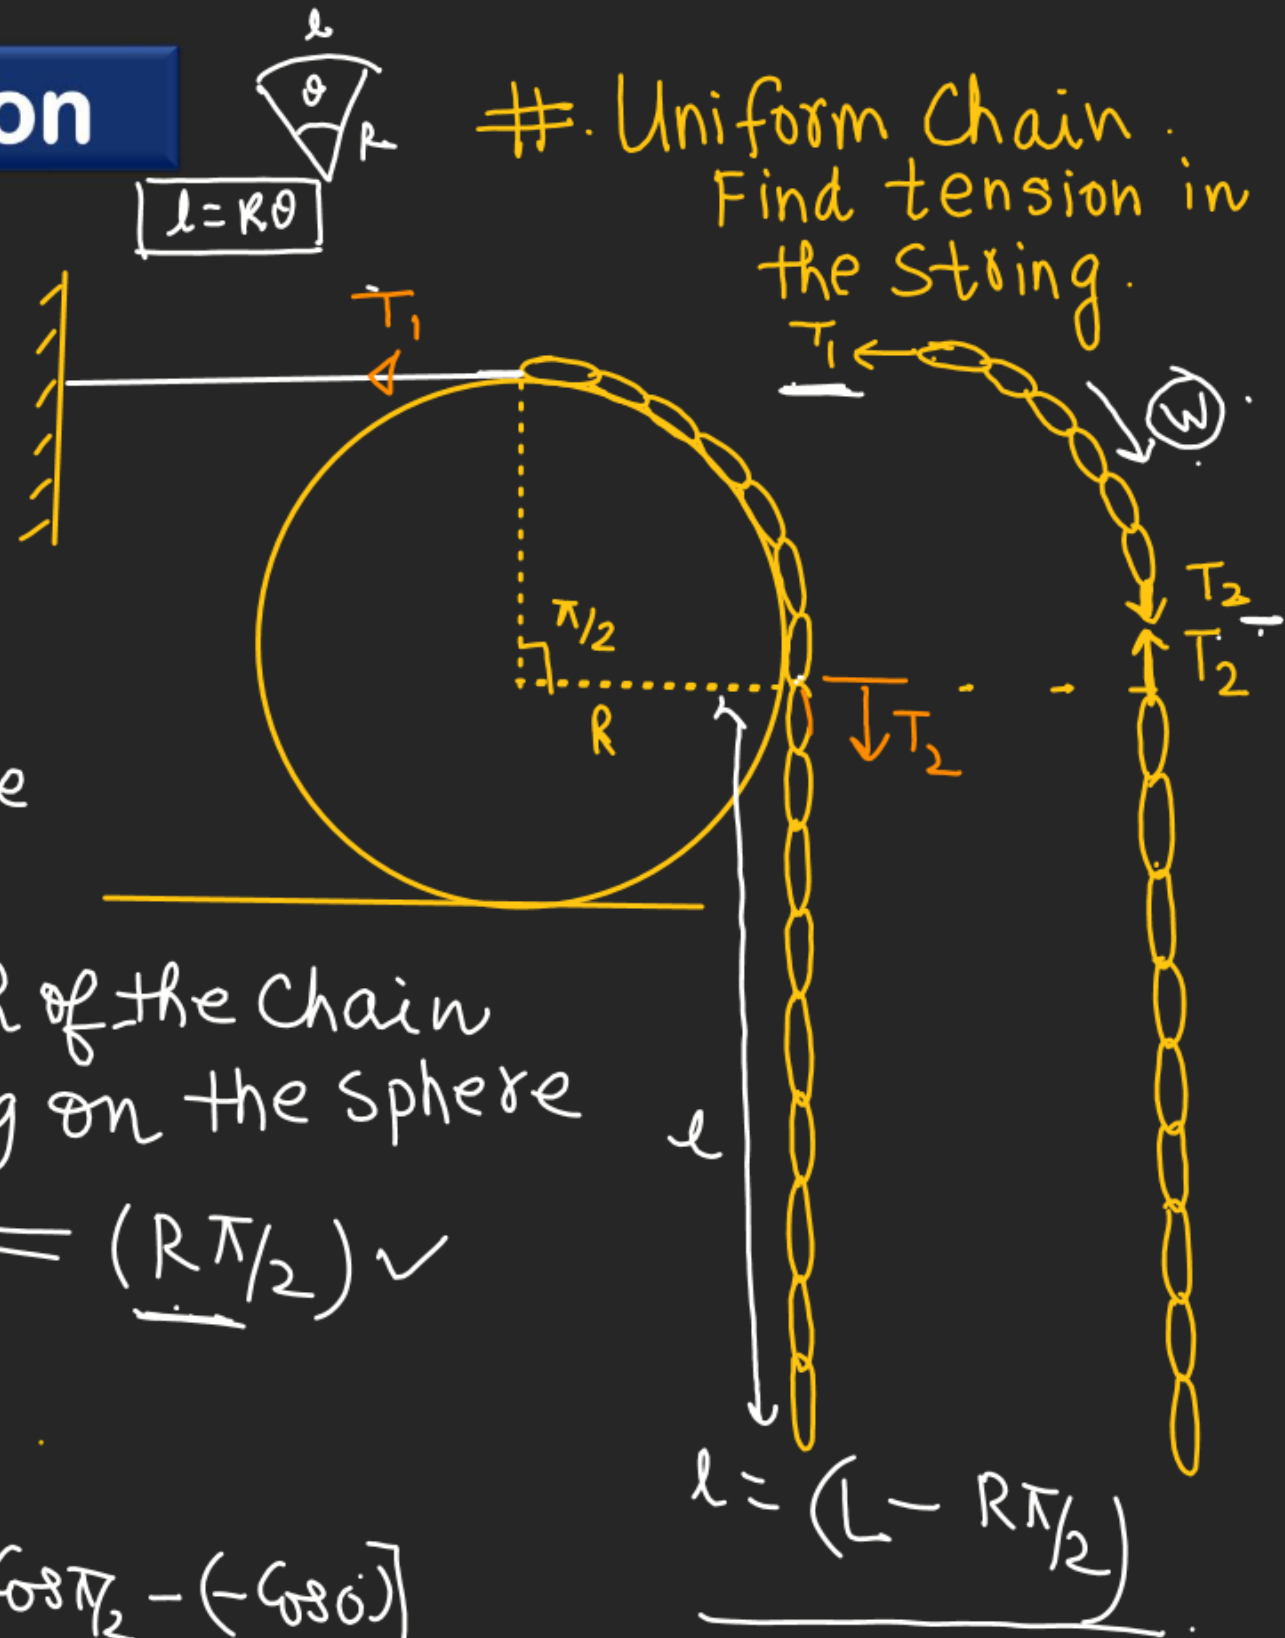 on
l
θ
R
l = Rθ
#. Uniform Chain.
Find tension in
the String.
T₁
T₁
W
π/2
R
T₂
T₂
T₂
e
of the Chain
g on the sphere
l
= (Rπ/2) ✓
l = (L - Rπ/2)
Cosπ/2 - (-Cos0)]